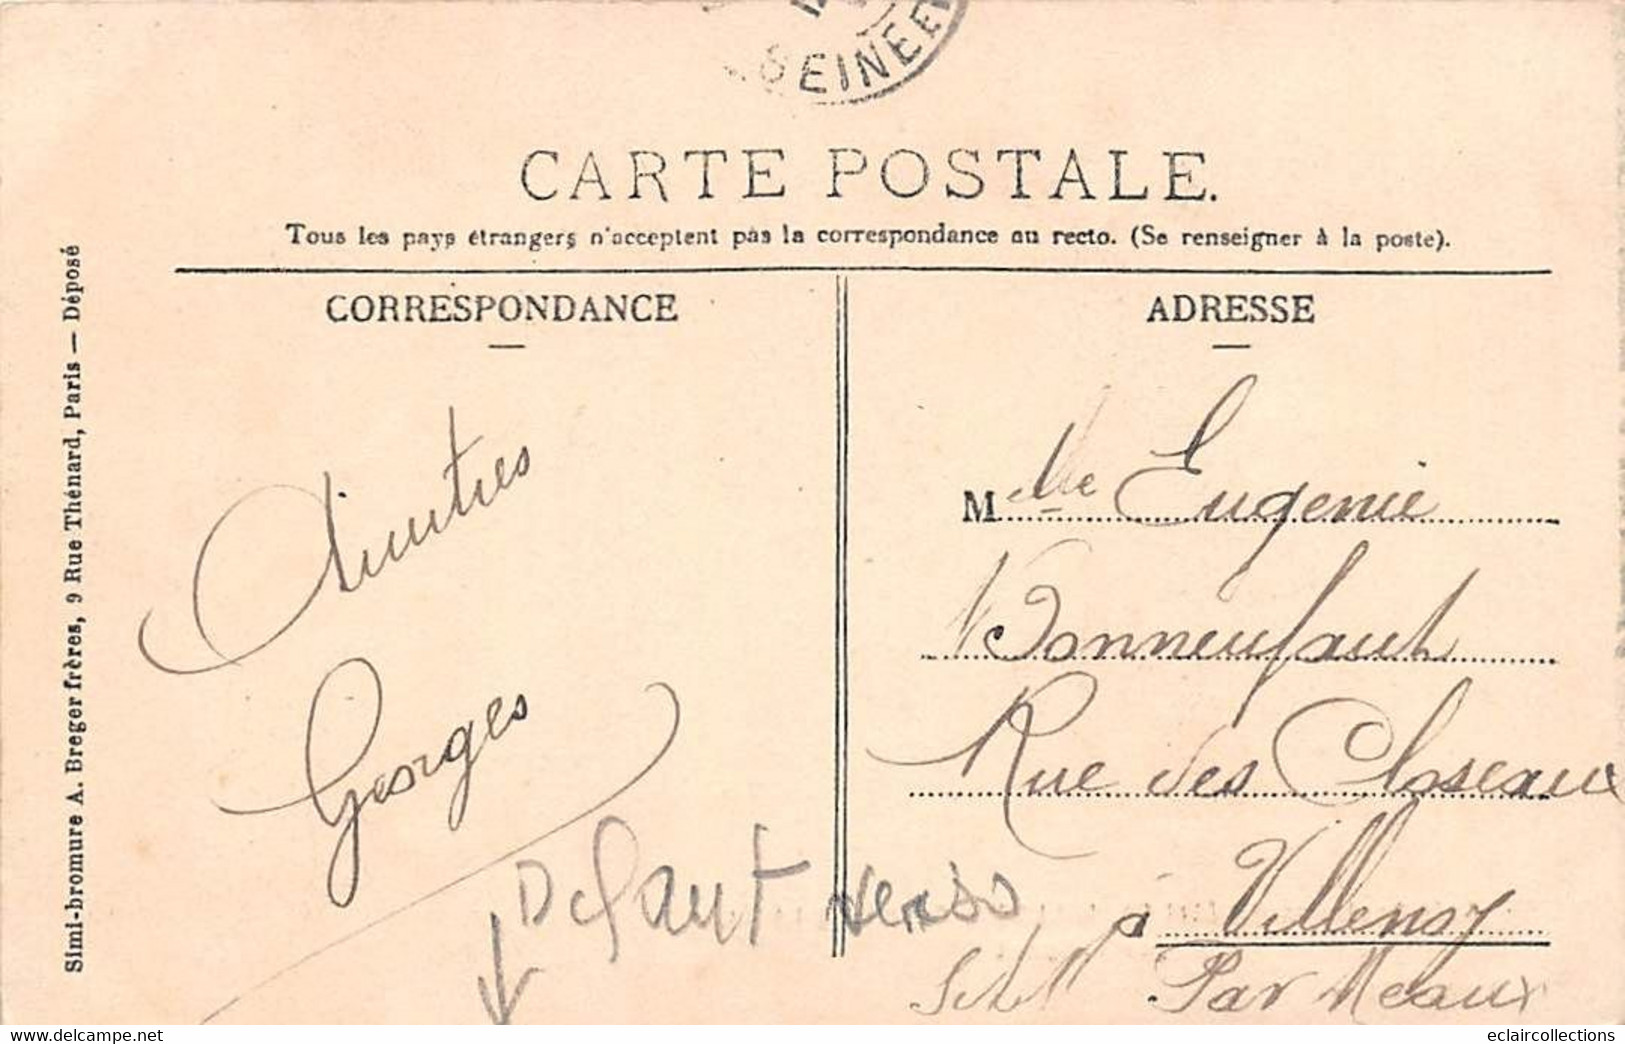 SEINE E
CARTE POSTALE.
Tous les pays étrangers n'acceptent pas la correspondance au recto. (Se renseigner à la poste).
CORRESPONDANCE
ADRESSE
Simi-bromure A. Breger frères, 9 Rue Thénard, Paris — Déposé
Amitiés
Georges
Melle Eugenie
Bonneufant
Rue des Closeaux
à Villenoy
Par Meaux
Defaut verso
eclaircollections